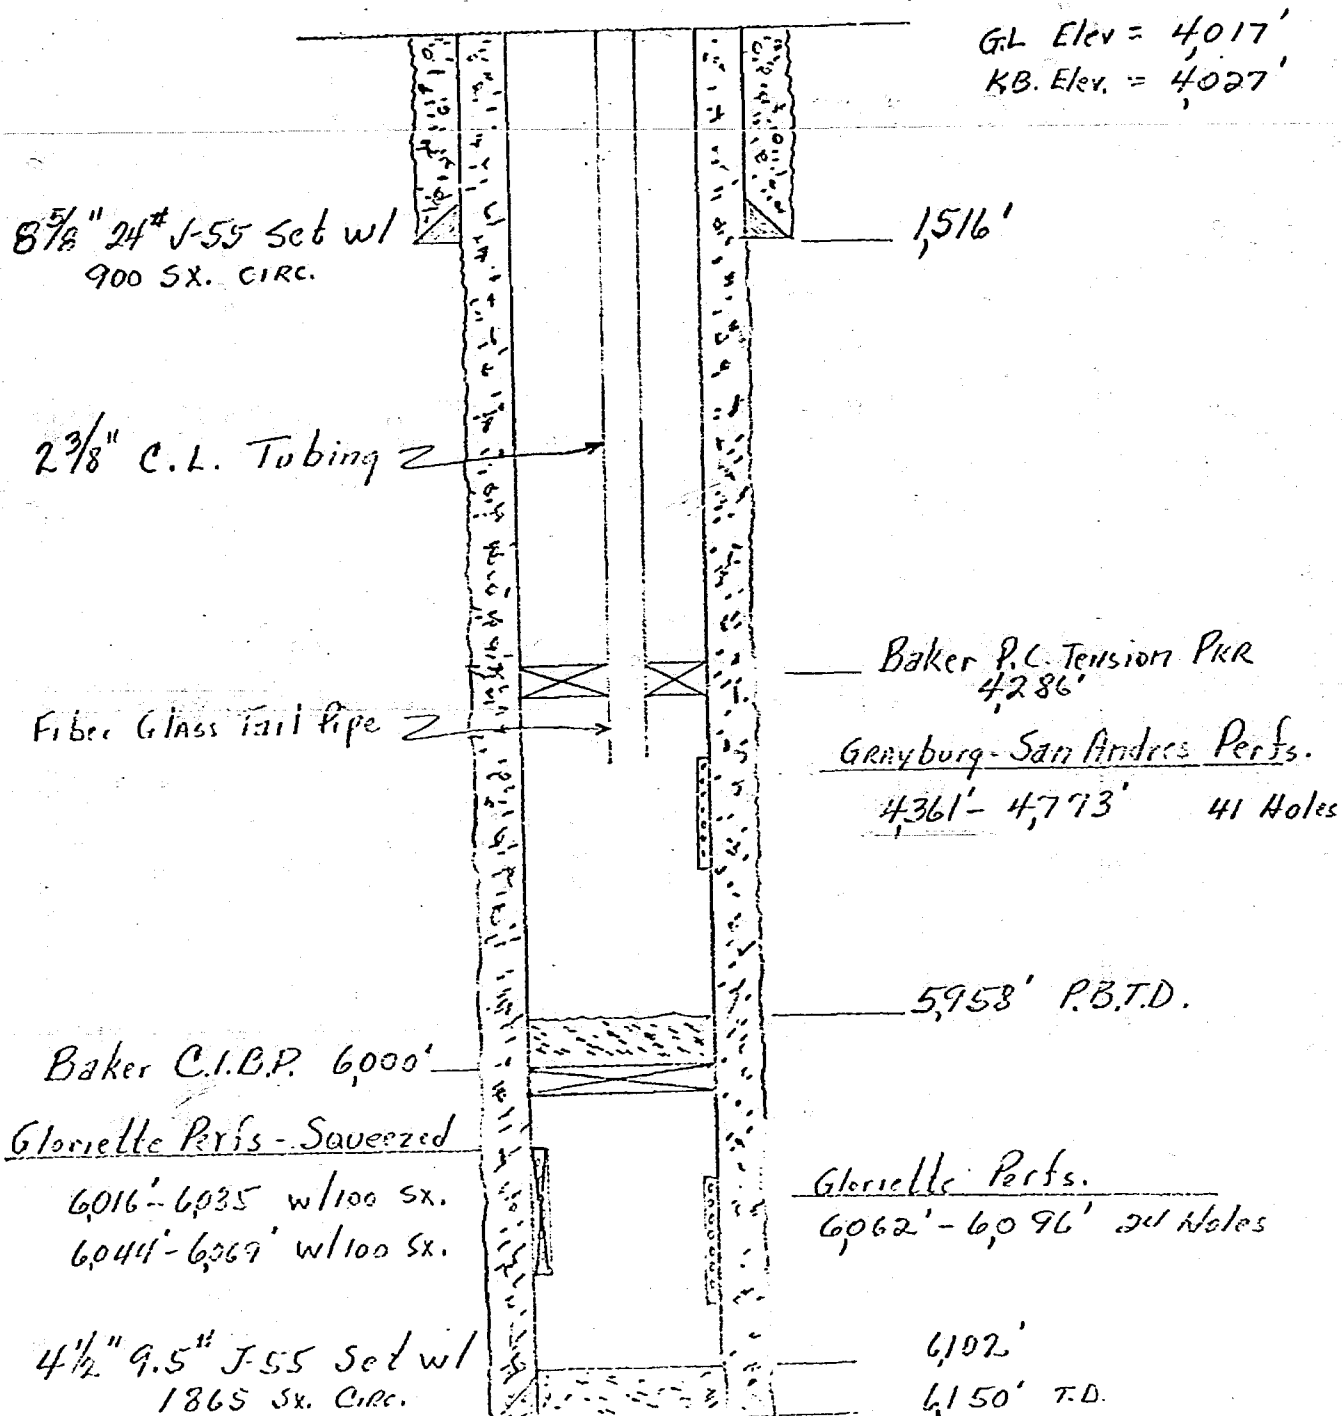 G.L Elev = 4,017'
K.B. Elev. = 4,027'
8 5/8" 24# J-55 Set w/
900 SX. CIRC.
1,516'
2 3/8" C.L. Tubing
Baker P.C. Tension PKR
4,286'
Fiber Glass Tail Pipe
Grayburg-San Andres Perfs.
4,361'- 4,773' 41 Holes
5,958' P.B.T.D.
Baker C.I.B.P. 6,000'
Glorietta Perfs - Squeezed
6,016'- 6,035 w/100 sx.
6,044'- 6,069' w/100 sx.
Glorietta Perfs.
6,062' - 6,096' 24 Holes
4 1/2" 9.5# J-55 Set w/
1865 Sx. Circ.
6,102'
6,150' T.D.